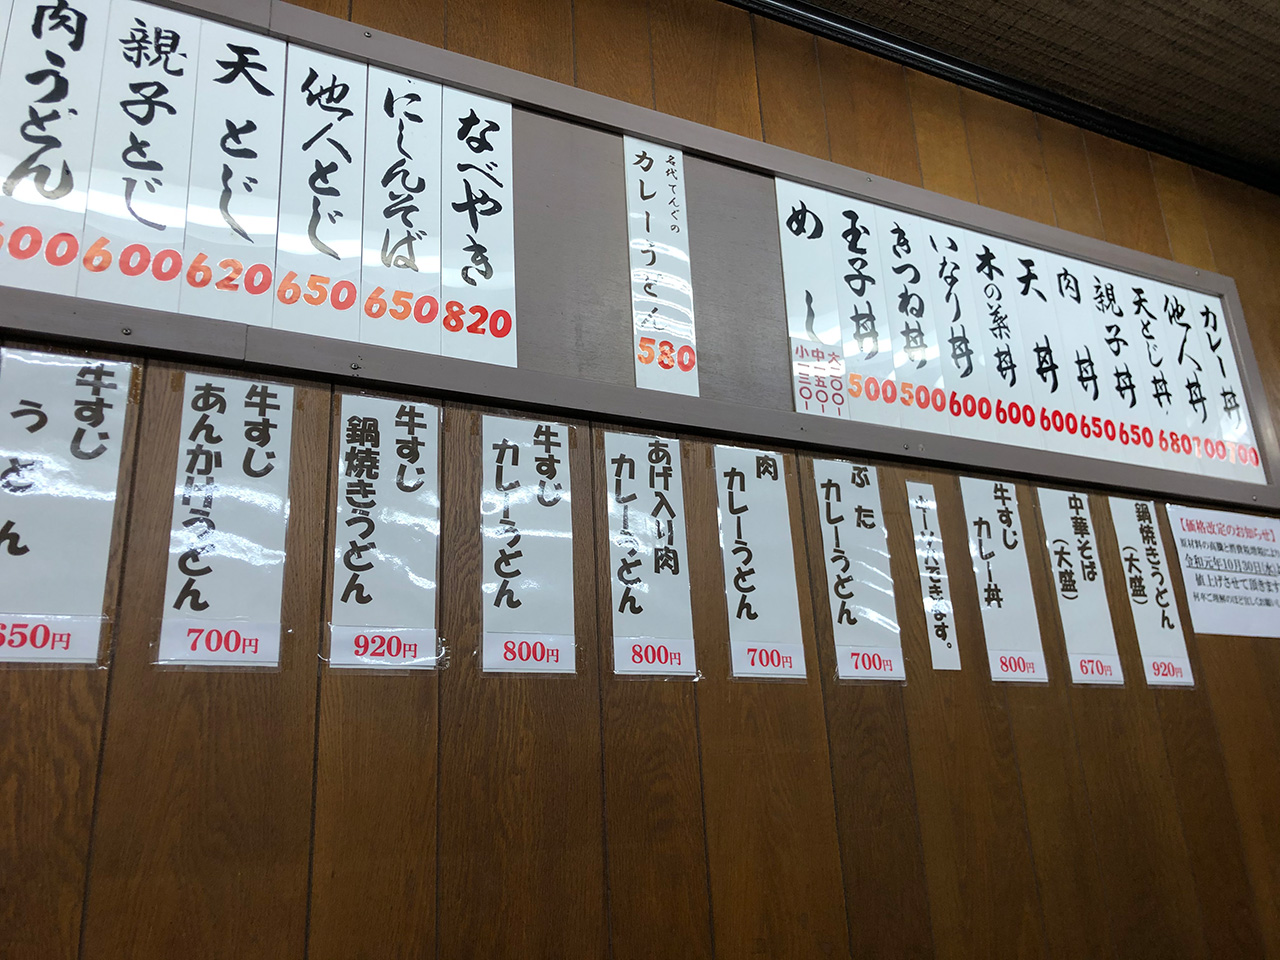 カレー丼
700
他人丼
700
天とじ丼
680
親子丼
650
肉丼
650
天丼
600
木の葉丼
600
いなり丼
600
きつね丼
500
玉子丼
500
めし
大二〇〇-
中一五〇-
小一三〇-
名代てんぐの
カレーうどん
580
なべやき
820
にしんそば
650
他人とじ
650
天とじ
620
親子とじ
600
肉うどん
600
【価格改定のお知らせ】
原材料の高騰と消費税増税により
令和元年10月30日(水)
値上げさせて頂きます
何卒ご理解のほど宜しくお願い
鍋焼きうどん
(大盛)
920円
中華そば
(大盛)
670円
牛すじ
カレー丼
800円
できます。
ぶた
カレーうどん
700円
肉
カレーうどん
700円
あげ入り肉
カレーうどん
800円
牛すじ
カレーうどん
800円
牛すじ
鍋焼きうどん
920円
牛すじ
あんかけうどん
700円
牛すじ
うどん
650円